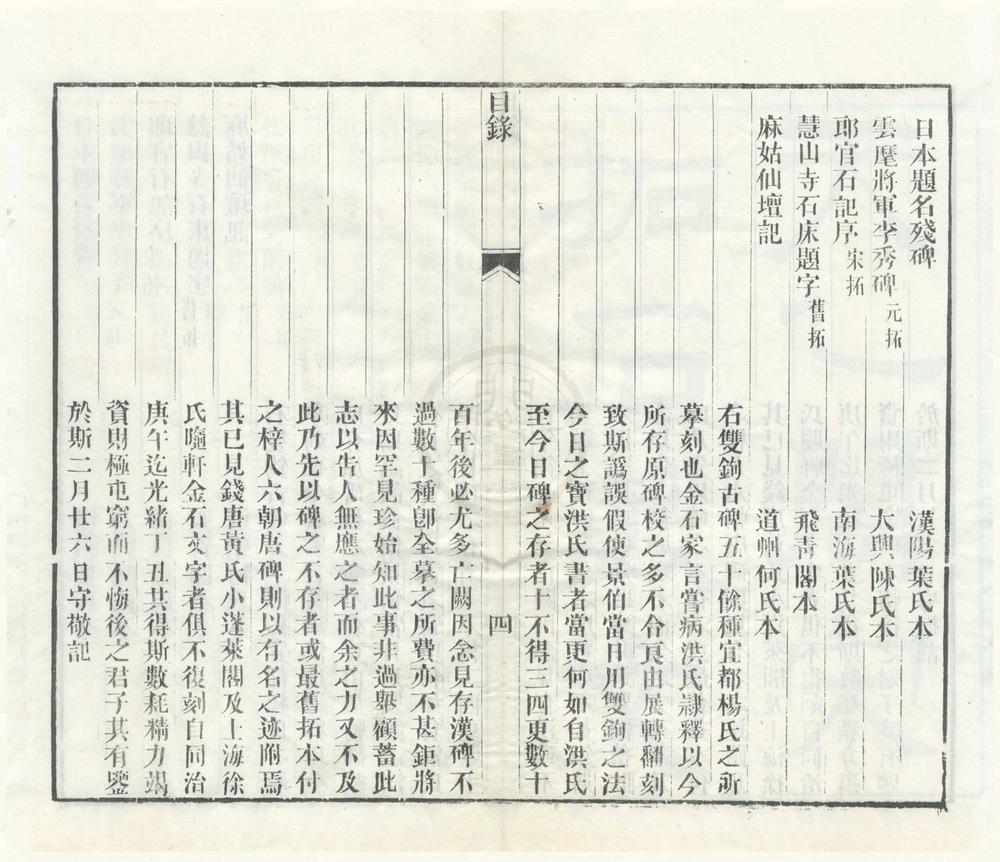 日本題名殘碑　漢陽葉氏本
雲麾將軍李秀碑元拓　大興陳氏本
郎官石記序宋拓　南海葉氏本
慧山寺石床題字舊拓　飛青閣本
麻姑仙壇記　道州何氏本
右雙鉤古碑五十餘種宜都楊氏之所
摹刻也金石家言嘗病洪氏隸釋以今
所存原碑校之多不合良由展轉翻刻
致斯譌誤假使景伯當日用雙鉤之法
今日之寶洪氏書者當更何如自洪氏
至今日碑之存者十不得三四更數十
目錄
四
百年後必尤多亡闕因念見存漢碑不
過數十種卽全摹之所費亦不甚鉅將
來因罕見珍始知此事非過舉顧蓄此
志以告人無應之者而余之力又不及
此乃先以碑之不存者或最舊拓本付
之梓人六朝唐碑則以有名之迹附焉
其已見錢唐黃氏小蓬萊閣及上海徐
氏隨軒金石文字者俱不復刻自同治
庚午迄光緒丁丑共得斯數耗精力竭
資財極屯窮而不悔後之君子其有鑒
於斯二月廿六日守敬記